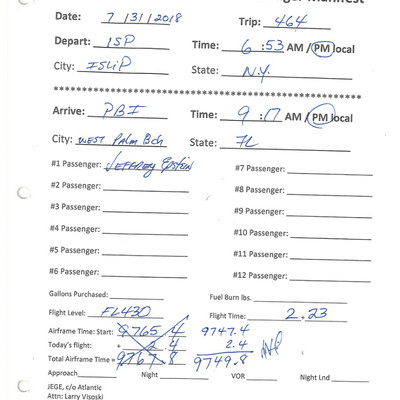 Manifest
Date: 7/31/2018 Trip: 464
Depart: ISP Time: 6:53 AM / PM local
City: ISLIP State: N.Y.
Arrive: PBI Time: 9:17 AM / PM local
City: WEST Palm Bch State: FL
#1 Passenger: JEFFREY EPSTEIN #7 Passenger:
#2 Passenger: #8 Passenger:
#3 Passenger: #9 Passenger:
#4 Passenger: #10 Passenger:
#5 Passenger: #11 Passenger:
#6 Passenger: #12 Passenger:
Gallons Purchased: Fuel Burn lbs.
Flight Level: FL430 Flight Time: 2.23
Airframe Time: Start: 9765.4 9747.4
Today's flight: + 2.4 2.4
Total Airframe Time = 9767.8 9749.8
Approach Night VOR Night Lnd
JEGE, c/o Atlantic
Attn: Larry Visoski